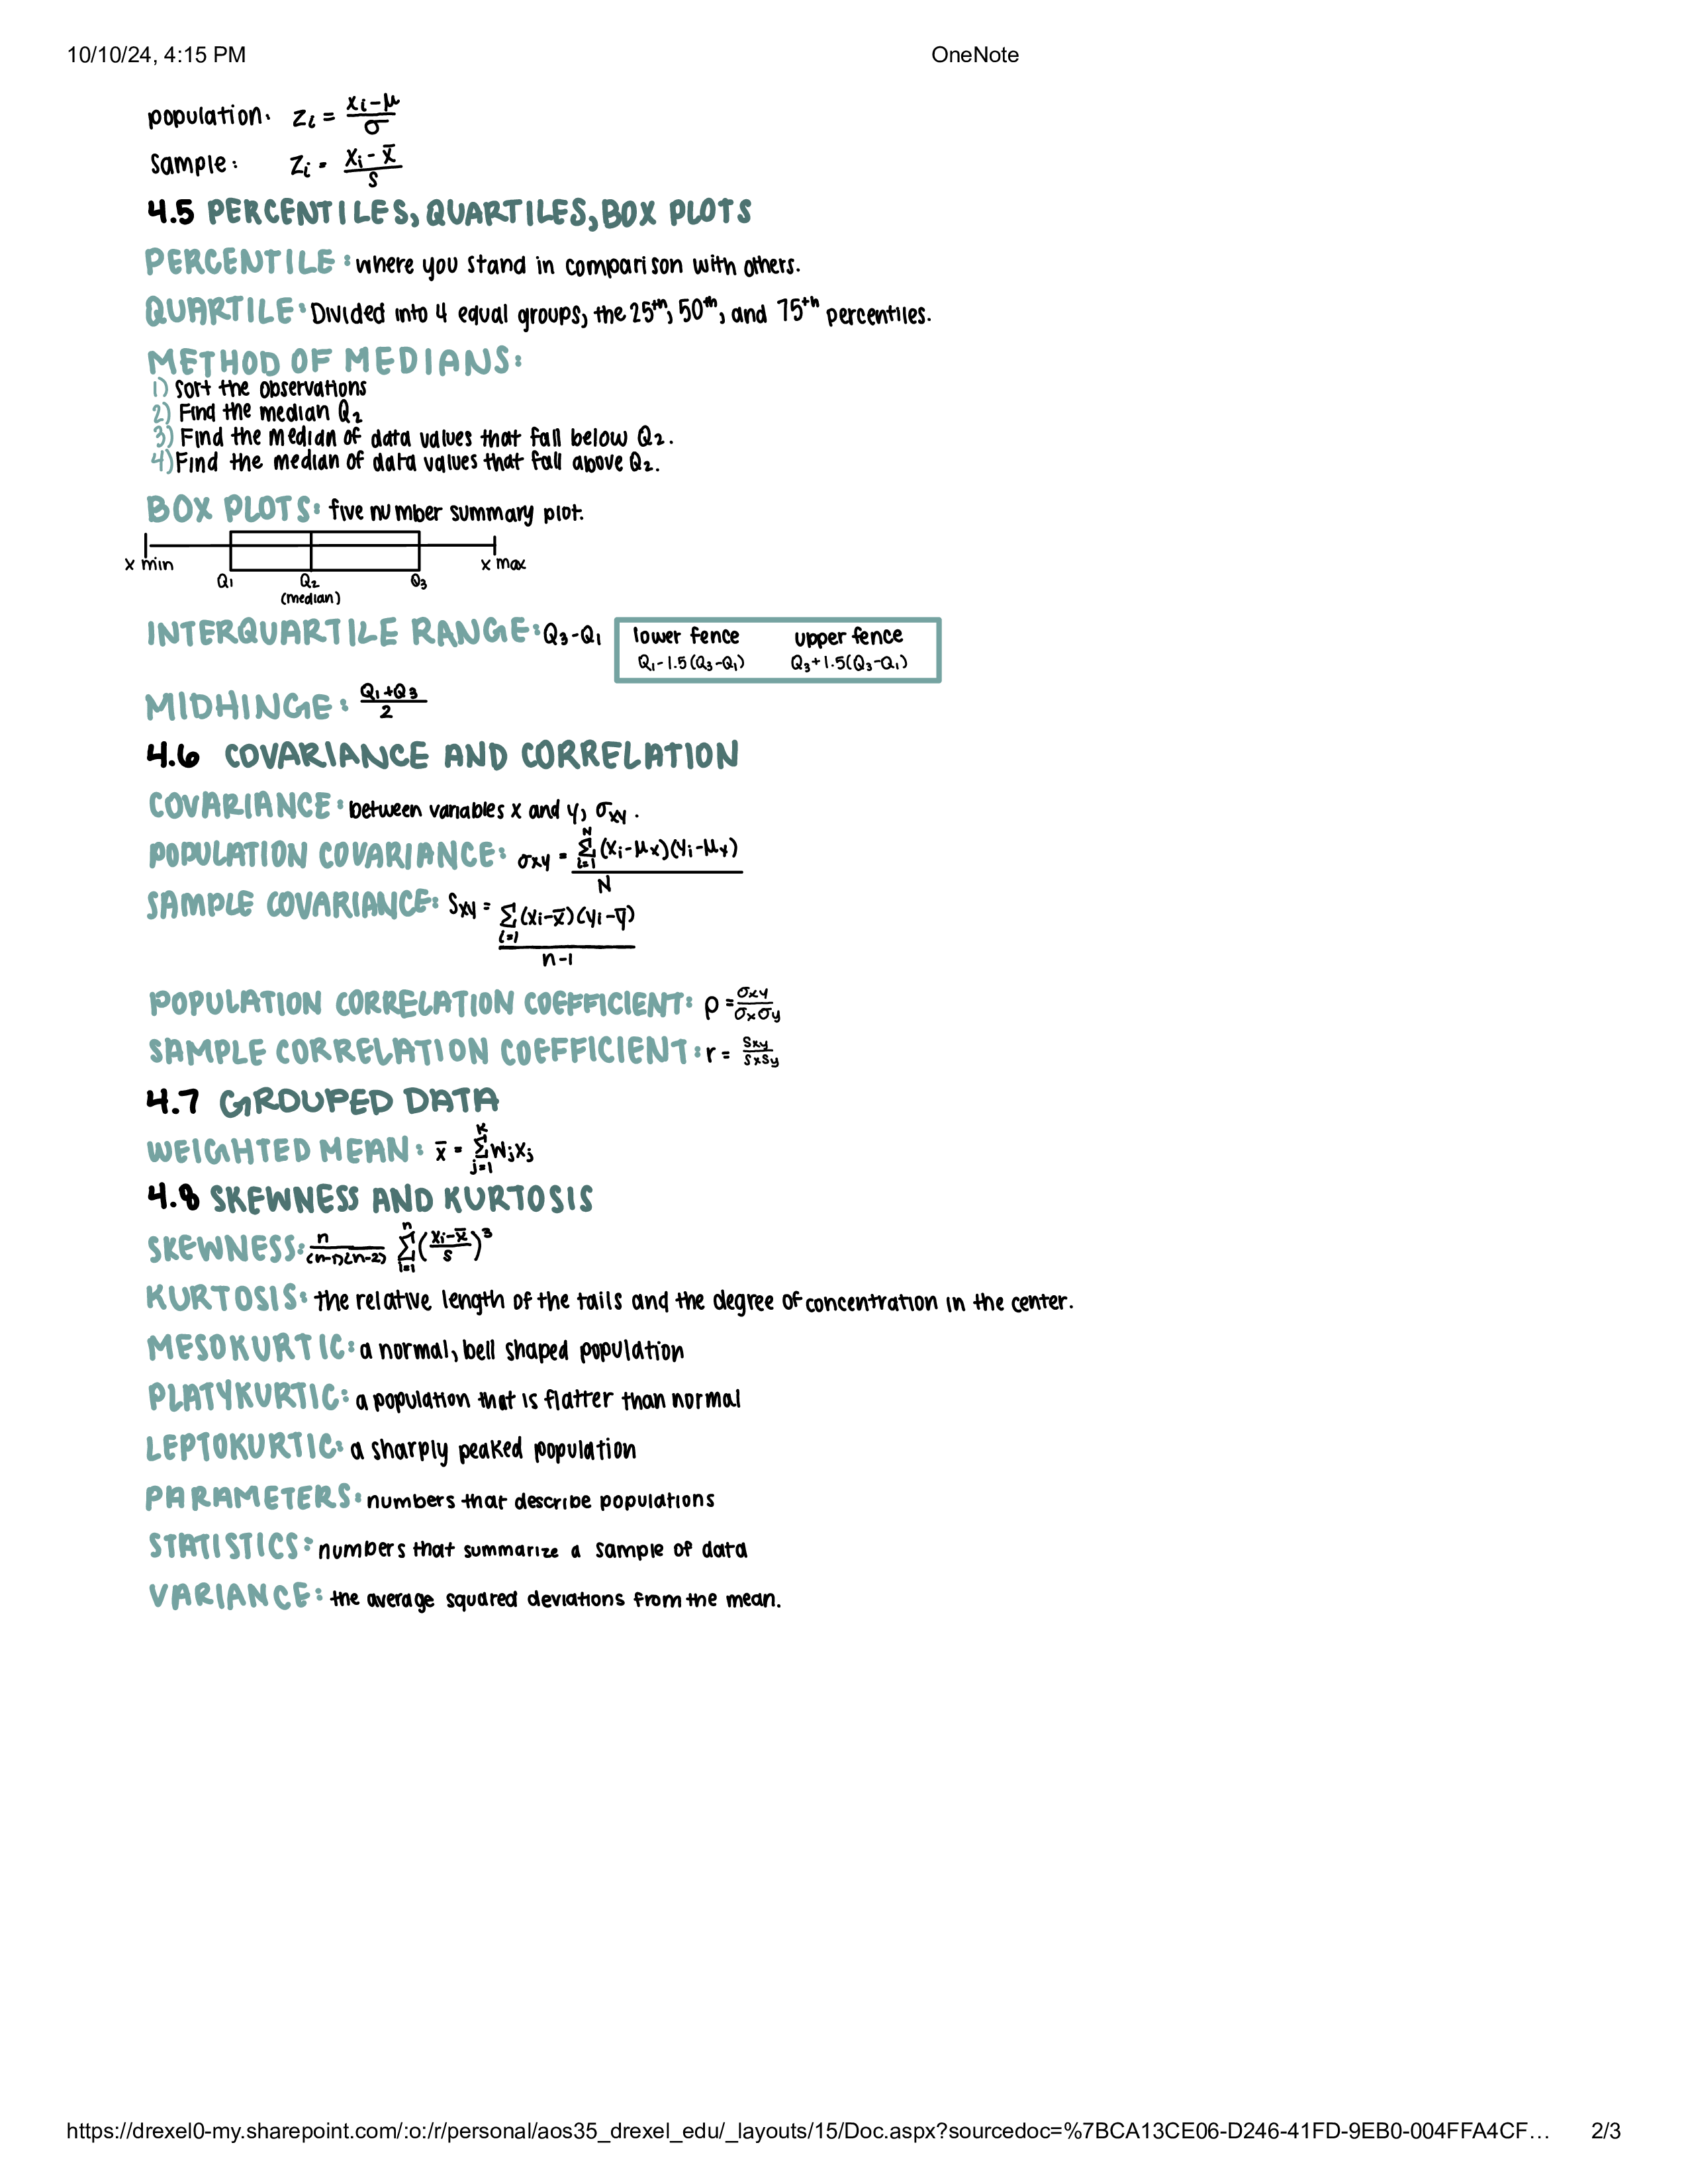 10/10/24, 4:15 PM OneNote
population: zᵢ = (xᵢ - μ)/σ
Sample: zᵢ = (xᵢ - x̄)/s
4.5 PERCENTILES, QUARTILES, BOX PLOTS
PERCENTILE: where you stand in comparison with others.
QUARTILE: Divided into 4 equal groups, the 25th, 50th, and 75th percentiles.
METHOD OF MEDIANS:
1) Sort the observations
2) Find the median Q₂
3) Find the median of data values that fall below Q₂.
4) Find the median of data values that fall above Q₂.
BOX PLOTS: five number summary plot.
x min x max
Q₁ Q₂ Q₃
(median)
INTERQUARTILE RANGE: Q₃-Q₁ lower fence upper fence
Q₁-1.5(Q₃-Q₁) Q₃+1.5(Q₃-Q₁)
MIDHINGE: (Q₁+Q₃)/2
4.6 COVARIANCE AND CORRELATION
COVARIANCE: between variables x and y, σxy.
POPULATION COVARIANCE: σxy = N Σ i=1 (xᵢ-μx)(yᵢ-μy) / N
SAMPLE COVARIANCE: Sxy = Σ i=1 (xᵢ-x̄)(yᵢ-ȳ) / n-1
POPULATION CORRELATION COEFFICIENT: ρ = σxy/σxσy
SAMPLE CORRELATION COEFFICIENT: r = sxy/sxsy
4.7 GROUPED DATA
WEIGHTED MEAN: x̄ = K Σ j=1 wⱼxⱼ
4.8 SKEWNESS AND KURTOSIS
SKEWNESS: n/(n-1)(n-2) n Σ i=1 ((xᵢ-x̄)/s)³
KURTOSIS: the relative length of the tails and the degree of concentration in the center.
MESOKURTIC: a normal, bell shaped population
PLATYKURTIC: a population that is flatter than normal
LEPTOKURTIC: a sharply peaked population
PARAMETERS: numbers that describe populations
STATISTICS: numbers that summarize a sample of data
VARIANCE: the average squared deviations from the mean.
https://drexel0-my.sharepoint.com/:o:/r/personal/aos35_drexel_edu/_layouts/15/Doc.aspx?sourcedoc=%7BCA13CE06-D246-41FD-9EB0-004FFA4CF… 2/3